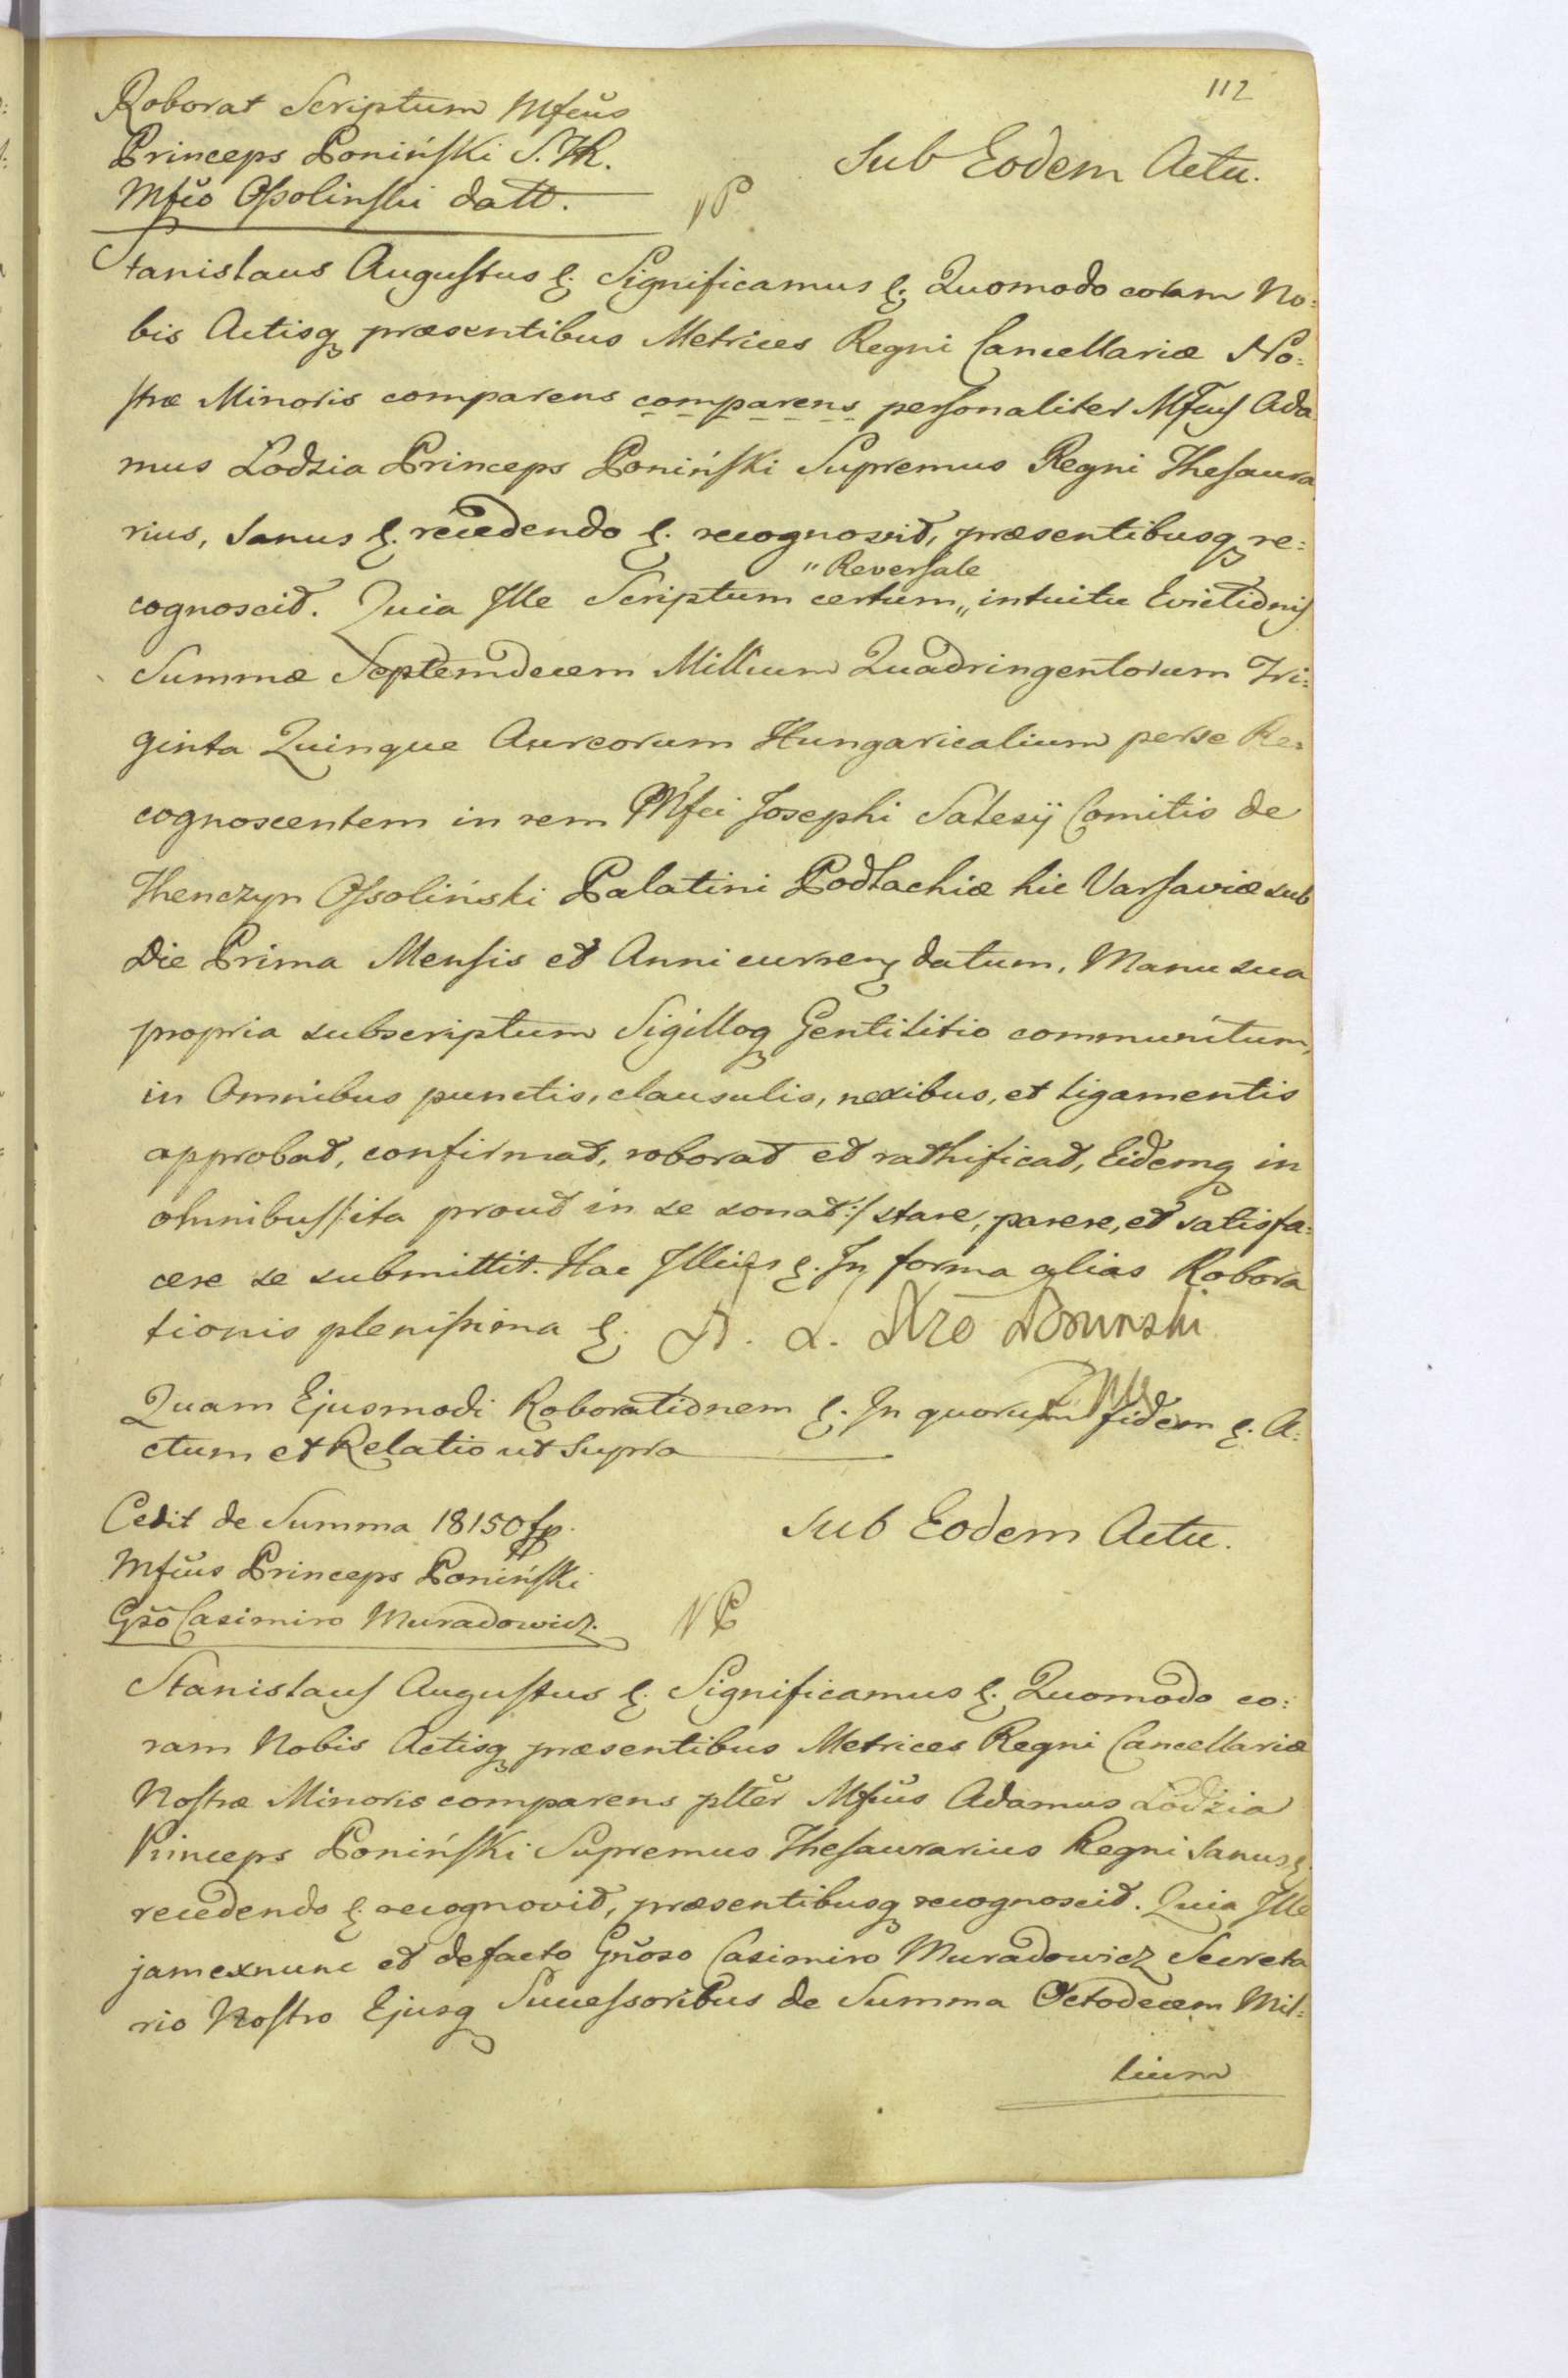 112
Roborat Scriptum Mfcus
Princeps Poniński S. Th.
Mfco Ossolinski datt.
Sub Eodem Actu.
Stanislaus Augustus &. Significamus &. Quomodo coram No:
bis Actisq præsentibus Metrices Regni Cancellariæ No:
stræ Minoris comparens comparens personaliter Mfcus Ada
mus Lodzia Princeps Poniński Supremus Regni Thesaura
rius, Sanus &. recedendo &. recognovit, præsentibusq re:
"Reversale
cognoscit. Quia Ille Scriptum certum,, intuitu Evictionis
Summæ Septemdecem Millium Quadringentorum Tri:
ginta Quinque Aureorum Hungaricalium perse Re:
cognoscentem in rem Mfci Josephi Salesij Comitis de
Thenczyn Ossoliński Palatini Podlachiæ hic Varsaviæ sub
Die Prima Mensis et Anni curren datum, Manu sua
propria subscriptum Sigilloq Gentilitio communitum,
in Omnibus punctis, clausulis, nexibus, et ligamentis
approbat, confirmat, roborat et rathificat, Eidemq in
omnibus /:ita prout in se sonat:/ stare, parere, et satisfa:
cere se submittit. Hac Illius &. In forma alias Robora
tionis plenissima &. A. L. Poninski
Quam Ejusmodi Roborationem &. In quorum fidem &. A:
ctum et Relatio ut Supra
Cedit de Summa 18150 fp.
Mfcus Princeps Poniński
Gso Casimiro Muradowicz.
Sub Eodem Actu.
Stanislaus Augustus &. Significamus &. Quomodo co:
ram Nobis Actisq præsentibus Metrices Regni Cancellariæ
Nostræ Minoris comparens plter Mfcus Adamus Lodzia
Princeps Poniński Supremus Thesaurarius Regni Sanus &
recedendo &. recognovit, præsentibusq recognoscit. Quia Ille
jamexnunc et defacto Gnoso Casimiro Muradowicz Secreta
rio Nostro Ejusq Successoribus de Summa Octodecem Mil:
lium